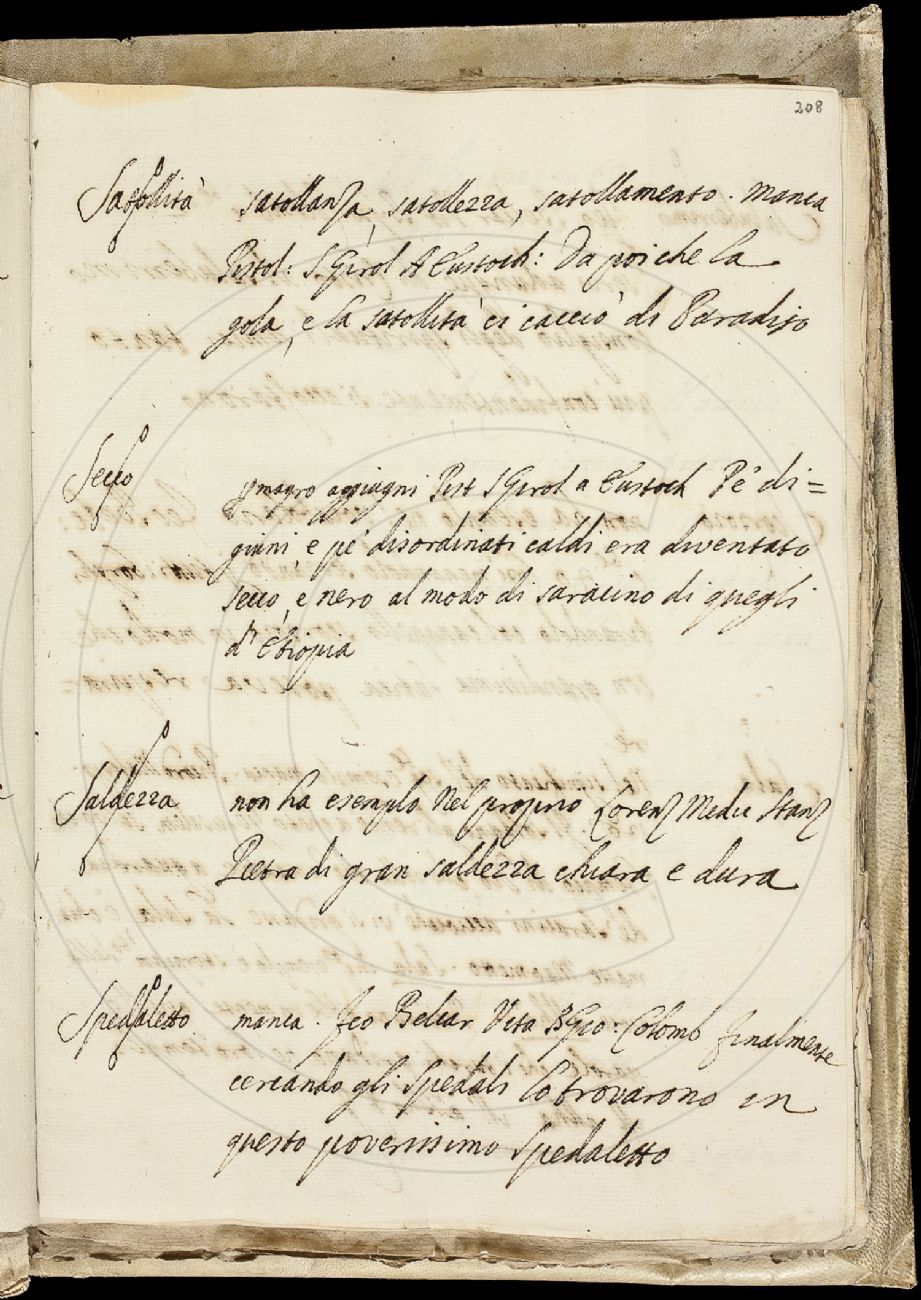 208
Satollità satollanza, satollezza, satollamento. manca
Pistol: S Girol A Eustoch: Da poi che la
gola, e la satollità ci cacciò di Paradiso
Secco p magro aggiugni Pist S Girol a Eustoch Pe' di=
giuni e pe' disordinati caldi era diventato
secco, e nero al modo di saracino di quegli
d'Etiopia
Saldezza non ha esemplo nel proprio Lorenz Medic Stanz
Pietra di gran saldezza chiara e dura
Spedaletto manca. Feo Belcar Vita B Gio: Colomb finalmente
cercando gli Spedali lo trovarono in
questo poverissimo spedaletto